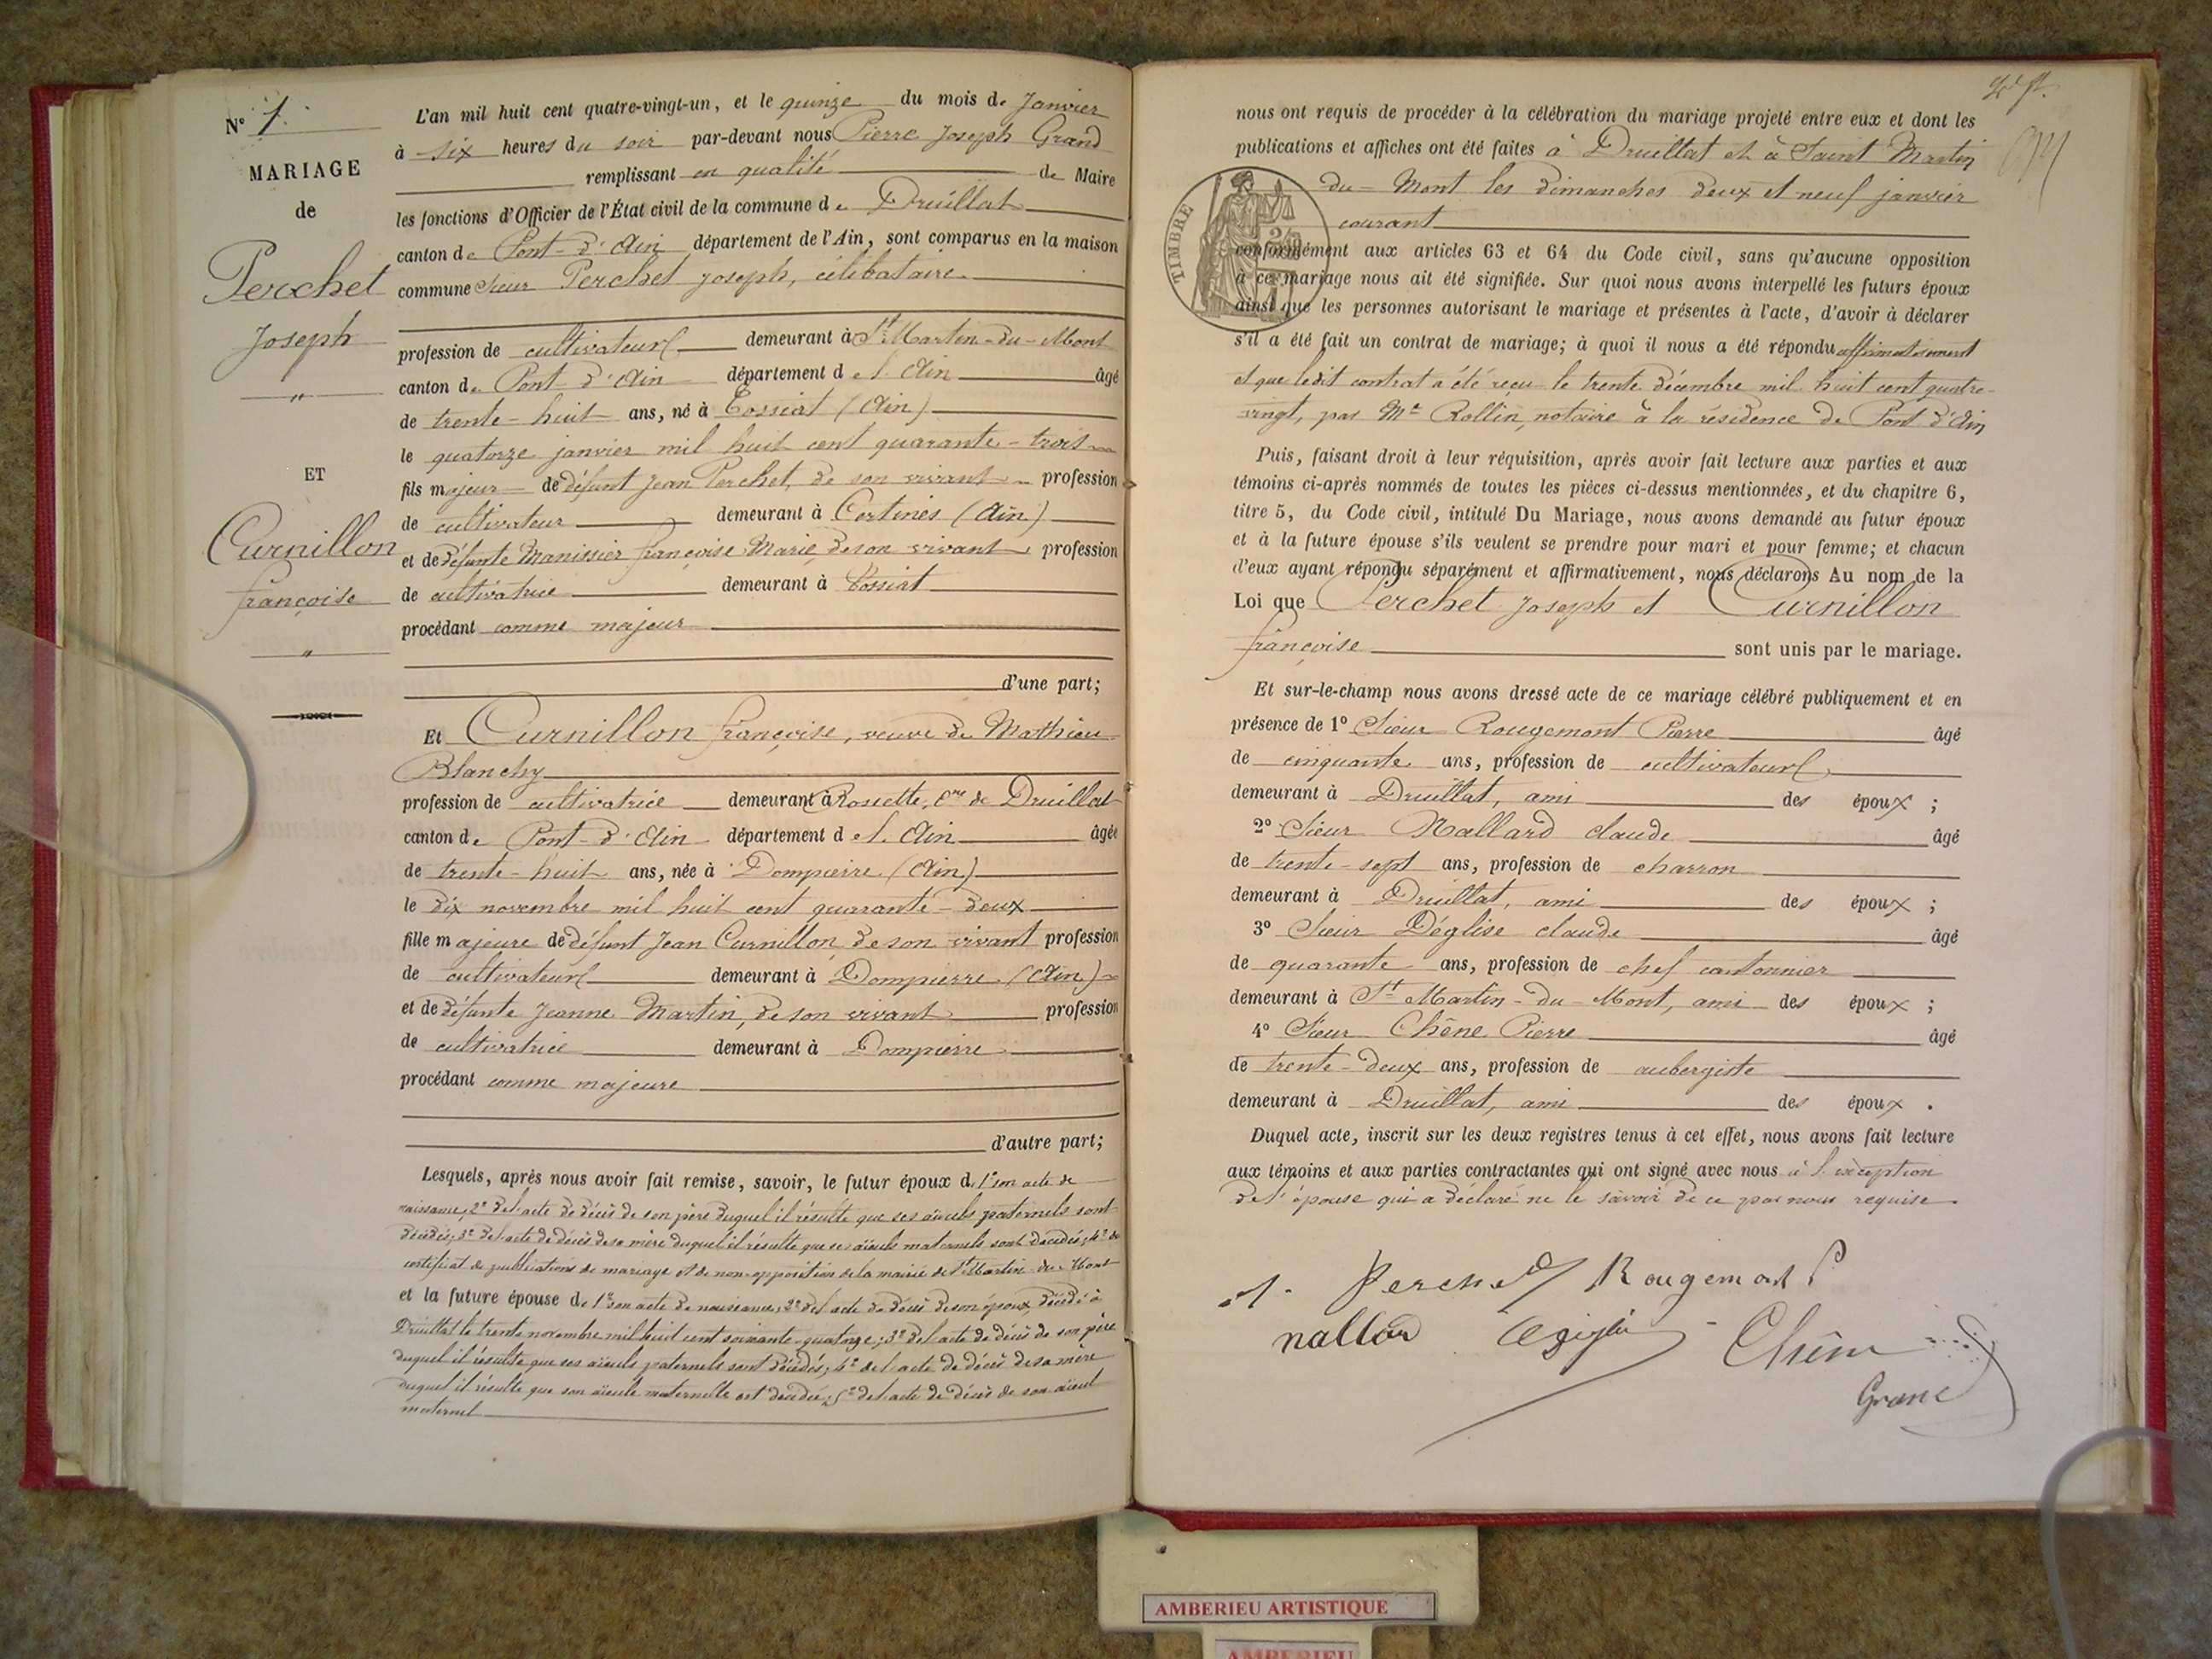 N° 1.
MARIAGE
de
Perchet
Joseph
"
ET
Curnillon
françoise
"
L'an mil huit cent quatre-vingt-un, et le quinze du mois de Janvier
à six heures du soir par-devant nous Pierre Joseph Grand
remplissant en qualité de Maire
les fonctions d'Officier de l'État civil de la commune de Druillat
canton de Pont-d'Ain département de l'Ain, sont comparus en la maison
commune Sieur Perchet Joseph, célibataire
profession de cultivateur demeurant à St Martin-du-Mont
canton de Pont-d'Ain département de l'Ain âgé
de trente-huit ans, né à Tossiat (Ain)
le quatorze janvier mil huit cent quarante-trois
fils majeur de défunt Jean Perchet, de son vivant profession
de cultivateur demeurant à Certines (Ain)
et de défunte Manissier françoise Marie, de son vivant profession
de cultivatrice demeurant à Tossiat
procédant comme majeur
d'une part;
Et Curnillon françoise, veuve de Mathieu
Blanchy
profession de cultivatrice demeurant à Rossette, Cne de Druillat
canton de Pont-d'Ain département de l'Ain âgée
de trente-huit ans, née à Dompierre (Ain)
le dix novembre mil huit cent quarante-deux
fille majeure de défunt Jean Curnillon, de son vivant profession
de cultivateur demeurant à Dompierre (Ain)
et de défunte Jeanne Martin, de son vivant profession
de cultivatrice demeurant à Dompierre
procédant comme majeure
d'autre part;
Lesquels, après nous avoir fait remise, savoir, le futur époux de 1° son acte de
naissance, 2° de l'acte de décès de son père duquel il résulte que ses aïeuls paternels sont
décédés; 3° de l'acte de décès de sa mère duquel il résulte que ses aïeuls maternels sont décédés; 4° du
certificat de publications de mariage et de non-opposition de la mairie de St Martin-du-Mont
et la future épouse de 1° son acte de naissance, 2° de l'acte de décès de son époux, décédé à
Druillat le trente novembre mil huit cent soixante-quatorze; 3° de l'acte de décès de son père
duquel il résulte que ses aïeuls paternels sont décédés; 4° de l'acte de décès de sa mère
duquel il résulte que son aïeule maternelle est décédée; 5° de l'acte de décès de son aïeul
maternel
nous ont requis de procéder à la célébration du mariage projeté entre eux et dont les
publications et affiches ont été faites à Druillat et à Saint Martin
du-Mont les dimanches deux et neuf janvier
courant
TIMBRE
conformément aux articles 63 et 64 du Code civil, sans qu'aucune opposition
à ce mariage nous ait été signifiée. Sur quoi nous avons interpellé les futurs époux
ainsi que les personnes autorisant le mariage et présentes à l'acte, d'avoir à déclarer
s'il a été fait un contrat de mariage; à quoi il nous a été répondu affirmativement
et que ledit contrat a été reçu le trente décembre mil huit cent quatre-
vingt, par Me Rollin, notaire à la résidence de Pont d'Ain
Puis, faisant droit à leur réquisition, après avoir fait lecture aux parties et aux
témoins ci-après nommés de toutes les pièces ci-dessus mentionnées, et du chapitre 6,
titre 5, du Code civil, intitulé Du Mariage, nous avons demandé au futur époux
et à la future épouse s'ils veulent se prendre pour mari et pour femme; et chacun
d'eux ayant répondu séparément et affirmativement, nous déclarons Au nom de la
Loi que Perchet Joseph et Curnillon
françoise sont unis par le mariage.
Et sur-le-champ nous avons dressé acte de ce mariage célébré publiquement et en
présence de 1° Sieur Rougemont Pierre âgé
de cinquante ans, profession de cultivateur
demeurant à Druillat, ami des époux;
2° Sieur Nallard claude âgé
de trente-sept ans, profession de charron
demeurant à Druillat, ami des époux;
3° Sieur Déglise claude âgé
de quarante ans, profession de chef cantonnier
demeurant à St Martin-du-Mont, ami des époux;
4° Sieur Chêne Pierre âgé
de trente-deux ans, profession de aubergiste
demeurant à Druillat, ami des époux.
Duquel acte, inscrit sur les deux registres tenus à cet effet, nous avons fait lecture
aux témoins et aux parties contractantes qui ont signé avec nous à l'exception
de l'épouse qui a déclaré ne le savoir de ce par nous requise.
J. Perchet Rougemont P
nallar Chêne
Grand
AMBERIEU ARTISTIQUE
AMBERIEU